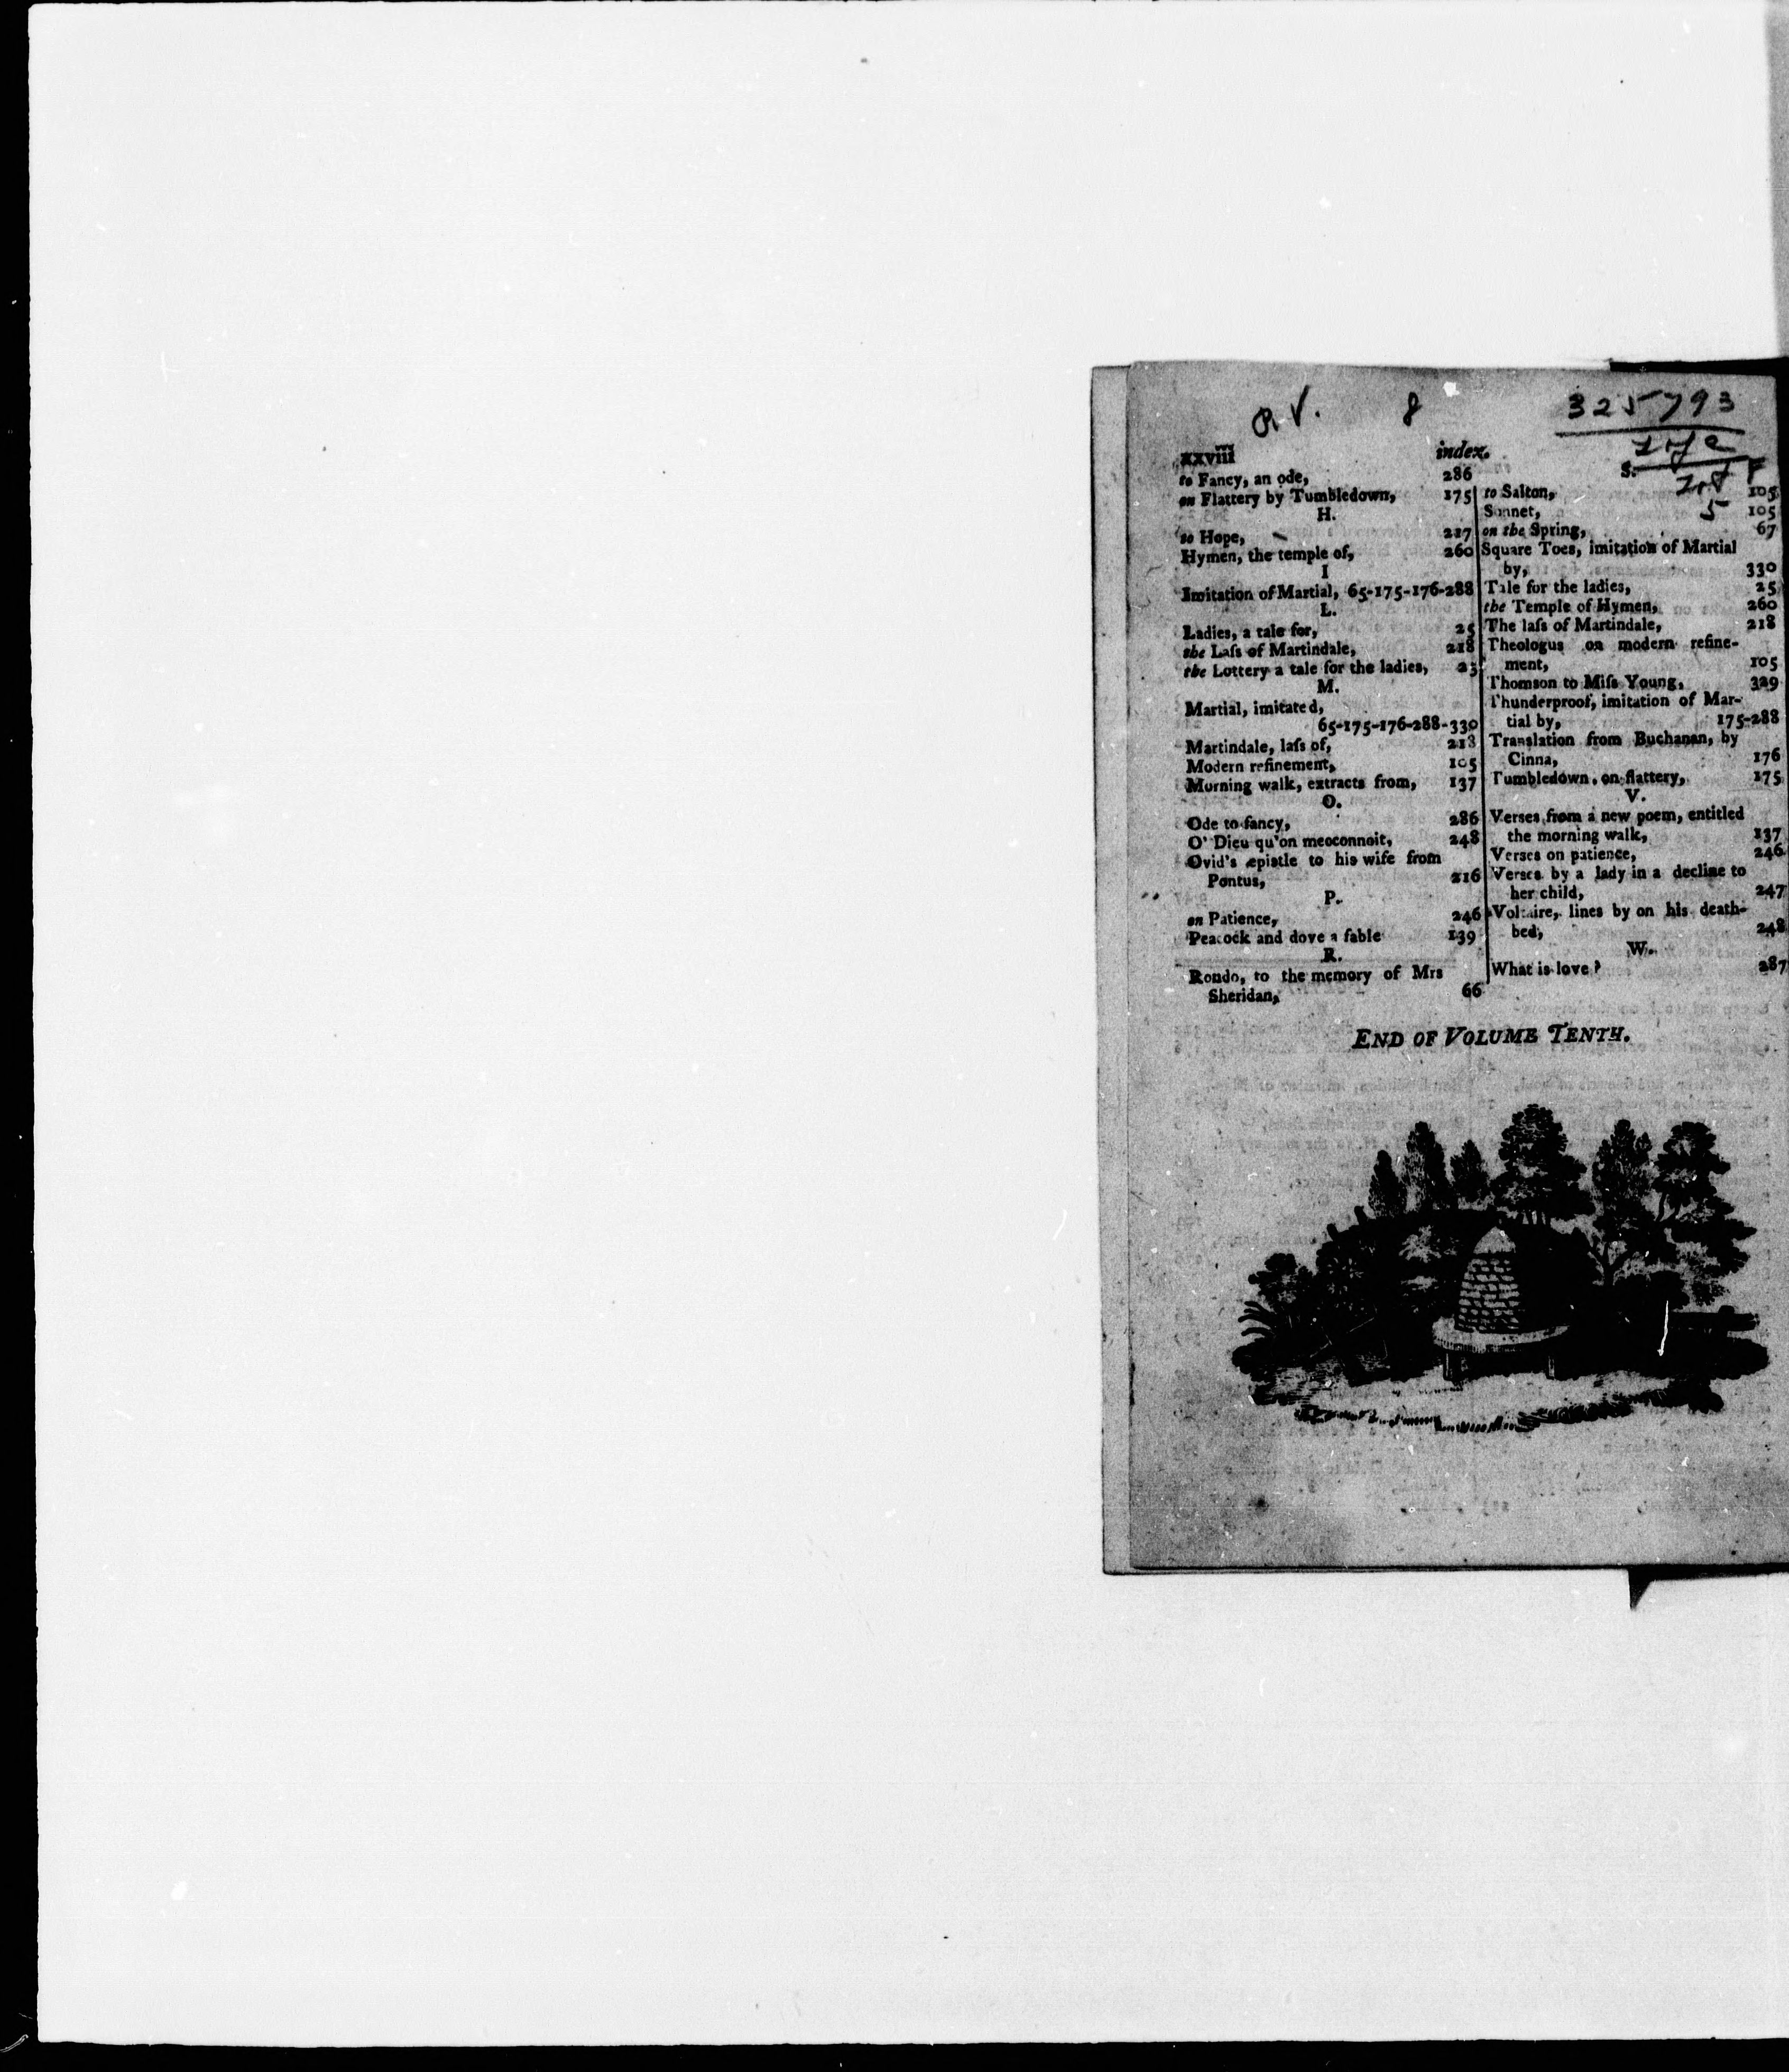 325793
xxviii index.
to Fancy, an ode, 286
on Flattery by Tumbledown, 175
H.
to Hope, 217
Hymen, the temple of, 260
I
Imitation of Martial, 65-175-176-288
L.
Ladies, a tale for, 25
the Laſs of Martindale, 218
the Lottery a tale for the ladies, 25
M.
Martial, imitated,
65-175-176-288-330
Martindale, laſs of, 218
Modern refinement, 105
Morning walk, extracts from, 137
O.
Ode to fancy, 286
O' Dieu qu'on meoconnoit, 248
Ovid's epistle to his wife from
Pontus, 216
P.
on Patience, 246
Peacock and dove a fable 139
R.
Rondo, to the memory of Mrs
Sheridan, 66
S.
to Salton, 105
Sonnet, 105
on the Spring, 67
Square Toes, imitation of Martial
by, 330
Tale for the ladies, 25
the Temple of Hymen, 260
The laſs of Martindale, 218
Theologus on modern refine-
ment, 105
Thomson to Miſs Young, 329
Thunderproof, imitation of Mar-
tial by, 175-288
Translation from Buchanan, by
Cinna, 176
Tumbledown, on flattery, 175
V.
Verses from a new poem, entitled
the morning walk, 137
Verses on patience, 246
Verses by a lady in a decline to
her child, 247
Voltaire, lines by on his death-
bed, 248
W.
What is love? 287
END OF VOLUME TENTH.